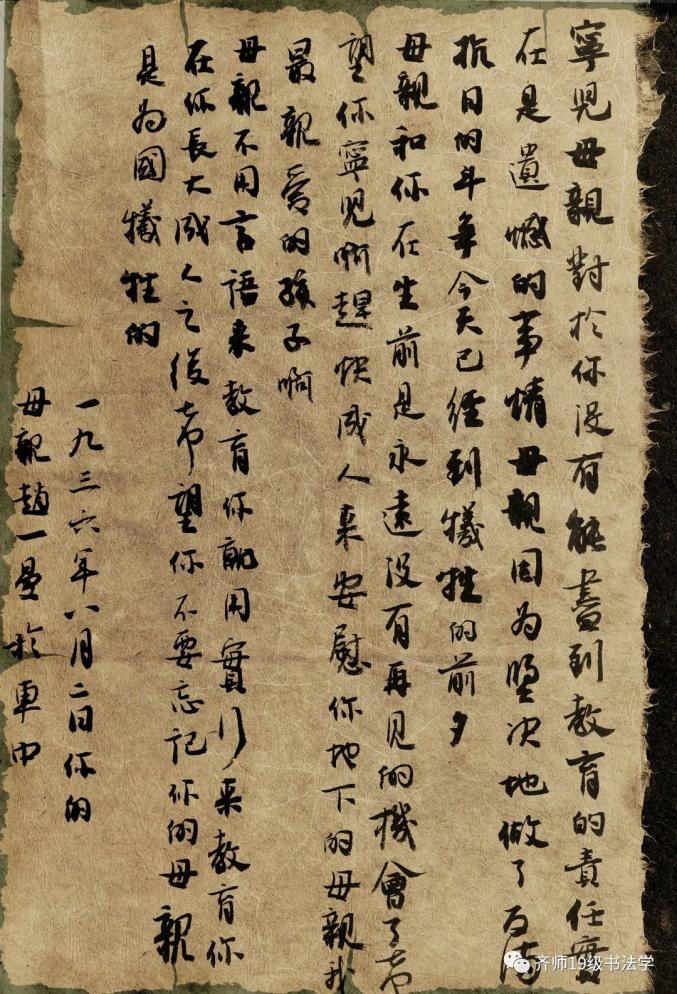 寧兒母親對於你没有能盡到教育的責任實
在是遺憾的事情母親因为堅决地做了反满
抗日的斗爭今天已經到犧牲的前夕
母親和你在生前是永遠没有再见的機會了希
望你寧兒啊趕快成人来安慰你地下的母親我
最親愛的孩子啊
母親不用言語来教育你就用實行来教育你
在你長大成人之後希望你不要忘記你的母親
是为國犧牲的
一九三六年八月二日你的
母親趙一曼於車中
齐师19级书法学